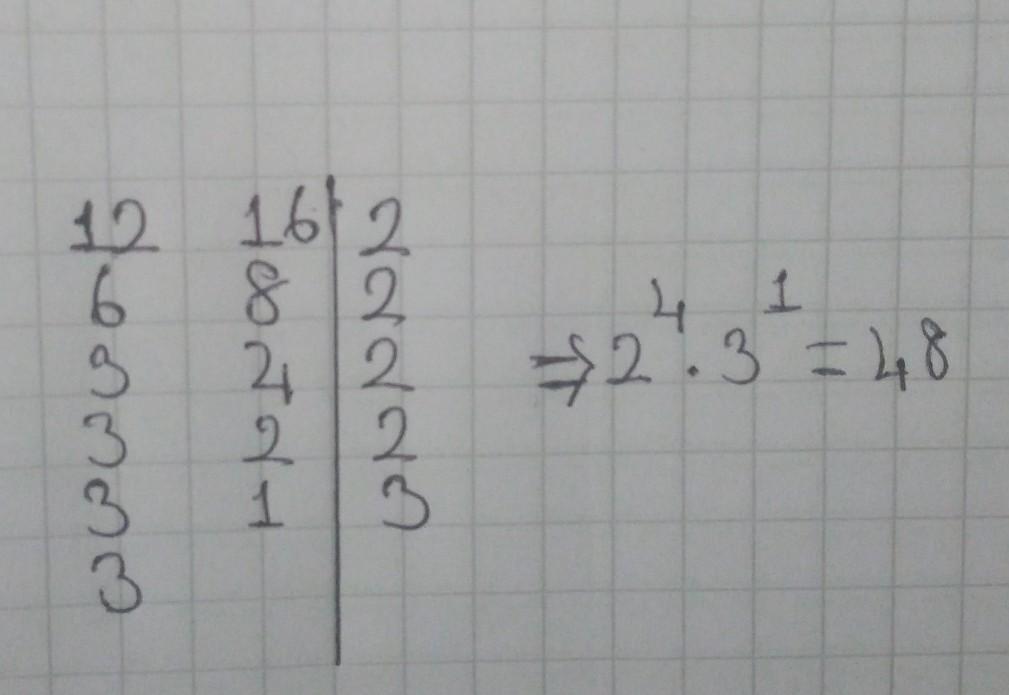 12 16 | 2
6 8 | 2
3 4 | 2
3 2 | 2
3 1 | 3
3
⇒ 2⁴ . 3¹ = 48